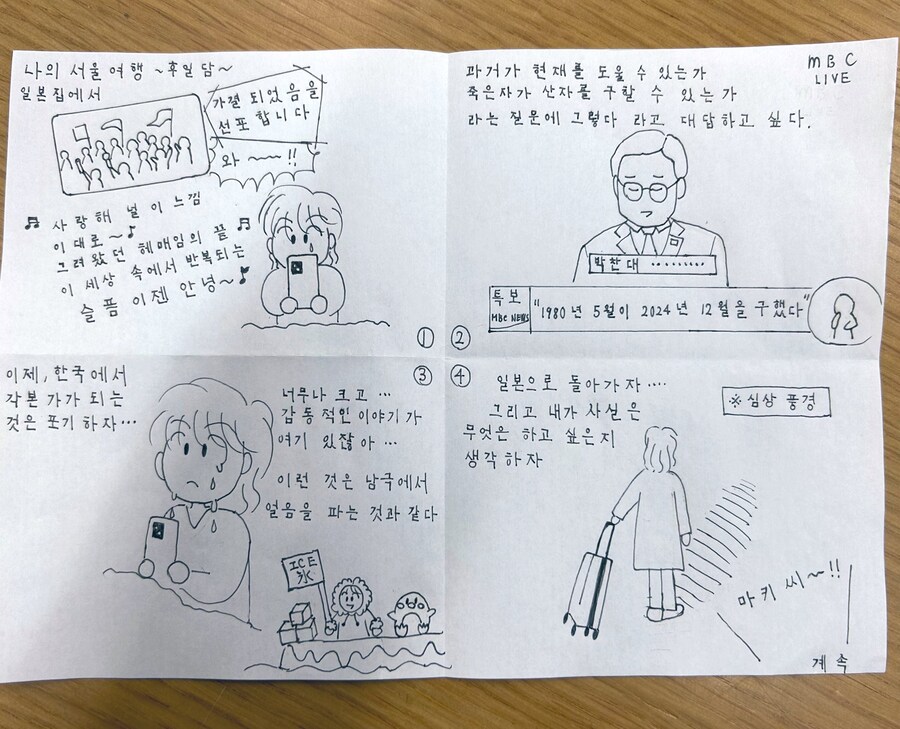 나의 서울 여행 ~후일담~
일본집에서
가결 되었음을
선포 합니다
와 ~~~ !!
사랑해 널 이 느낌
이 대로~
그려 왔던 헤매임의 끝
이 세상 속에서 반복되는
슬픔 이젠 안녕~
①
과거가 현재를 도울 수 있는가
죽은자가 산자를 구할 수 있는가
라는 질문에 그렇다 라고 대답하고 싶다.
MBC
LIVE
박찬대 .........
특보
MBC NEWS
"1980년 5월이 2024년 12월을 구했다"
②
이제, 한국에서
각본 가가 되는
것은 포기 하자...
③
너무나 크고 ...
감동적인 이야기가
여기 있잖아 ...
이런 것은 남국에서
얼음을 파는 것과 같다
ICE
氷
④
일본으로 돌아가자 ....
그리고 내가 사실은
무엇은 하고 싶은지
생각 하자
※심상 풍경
마키 씨~!!
계속